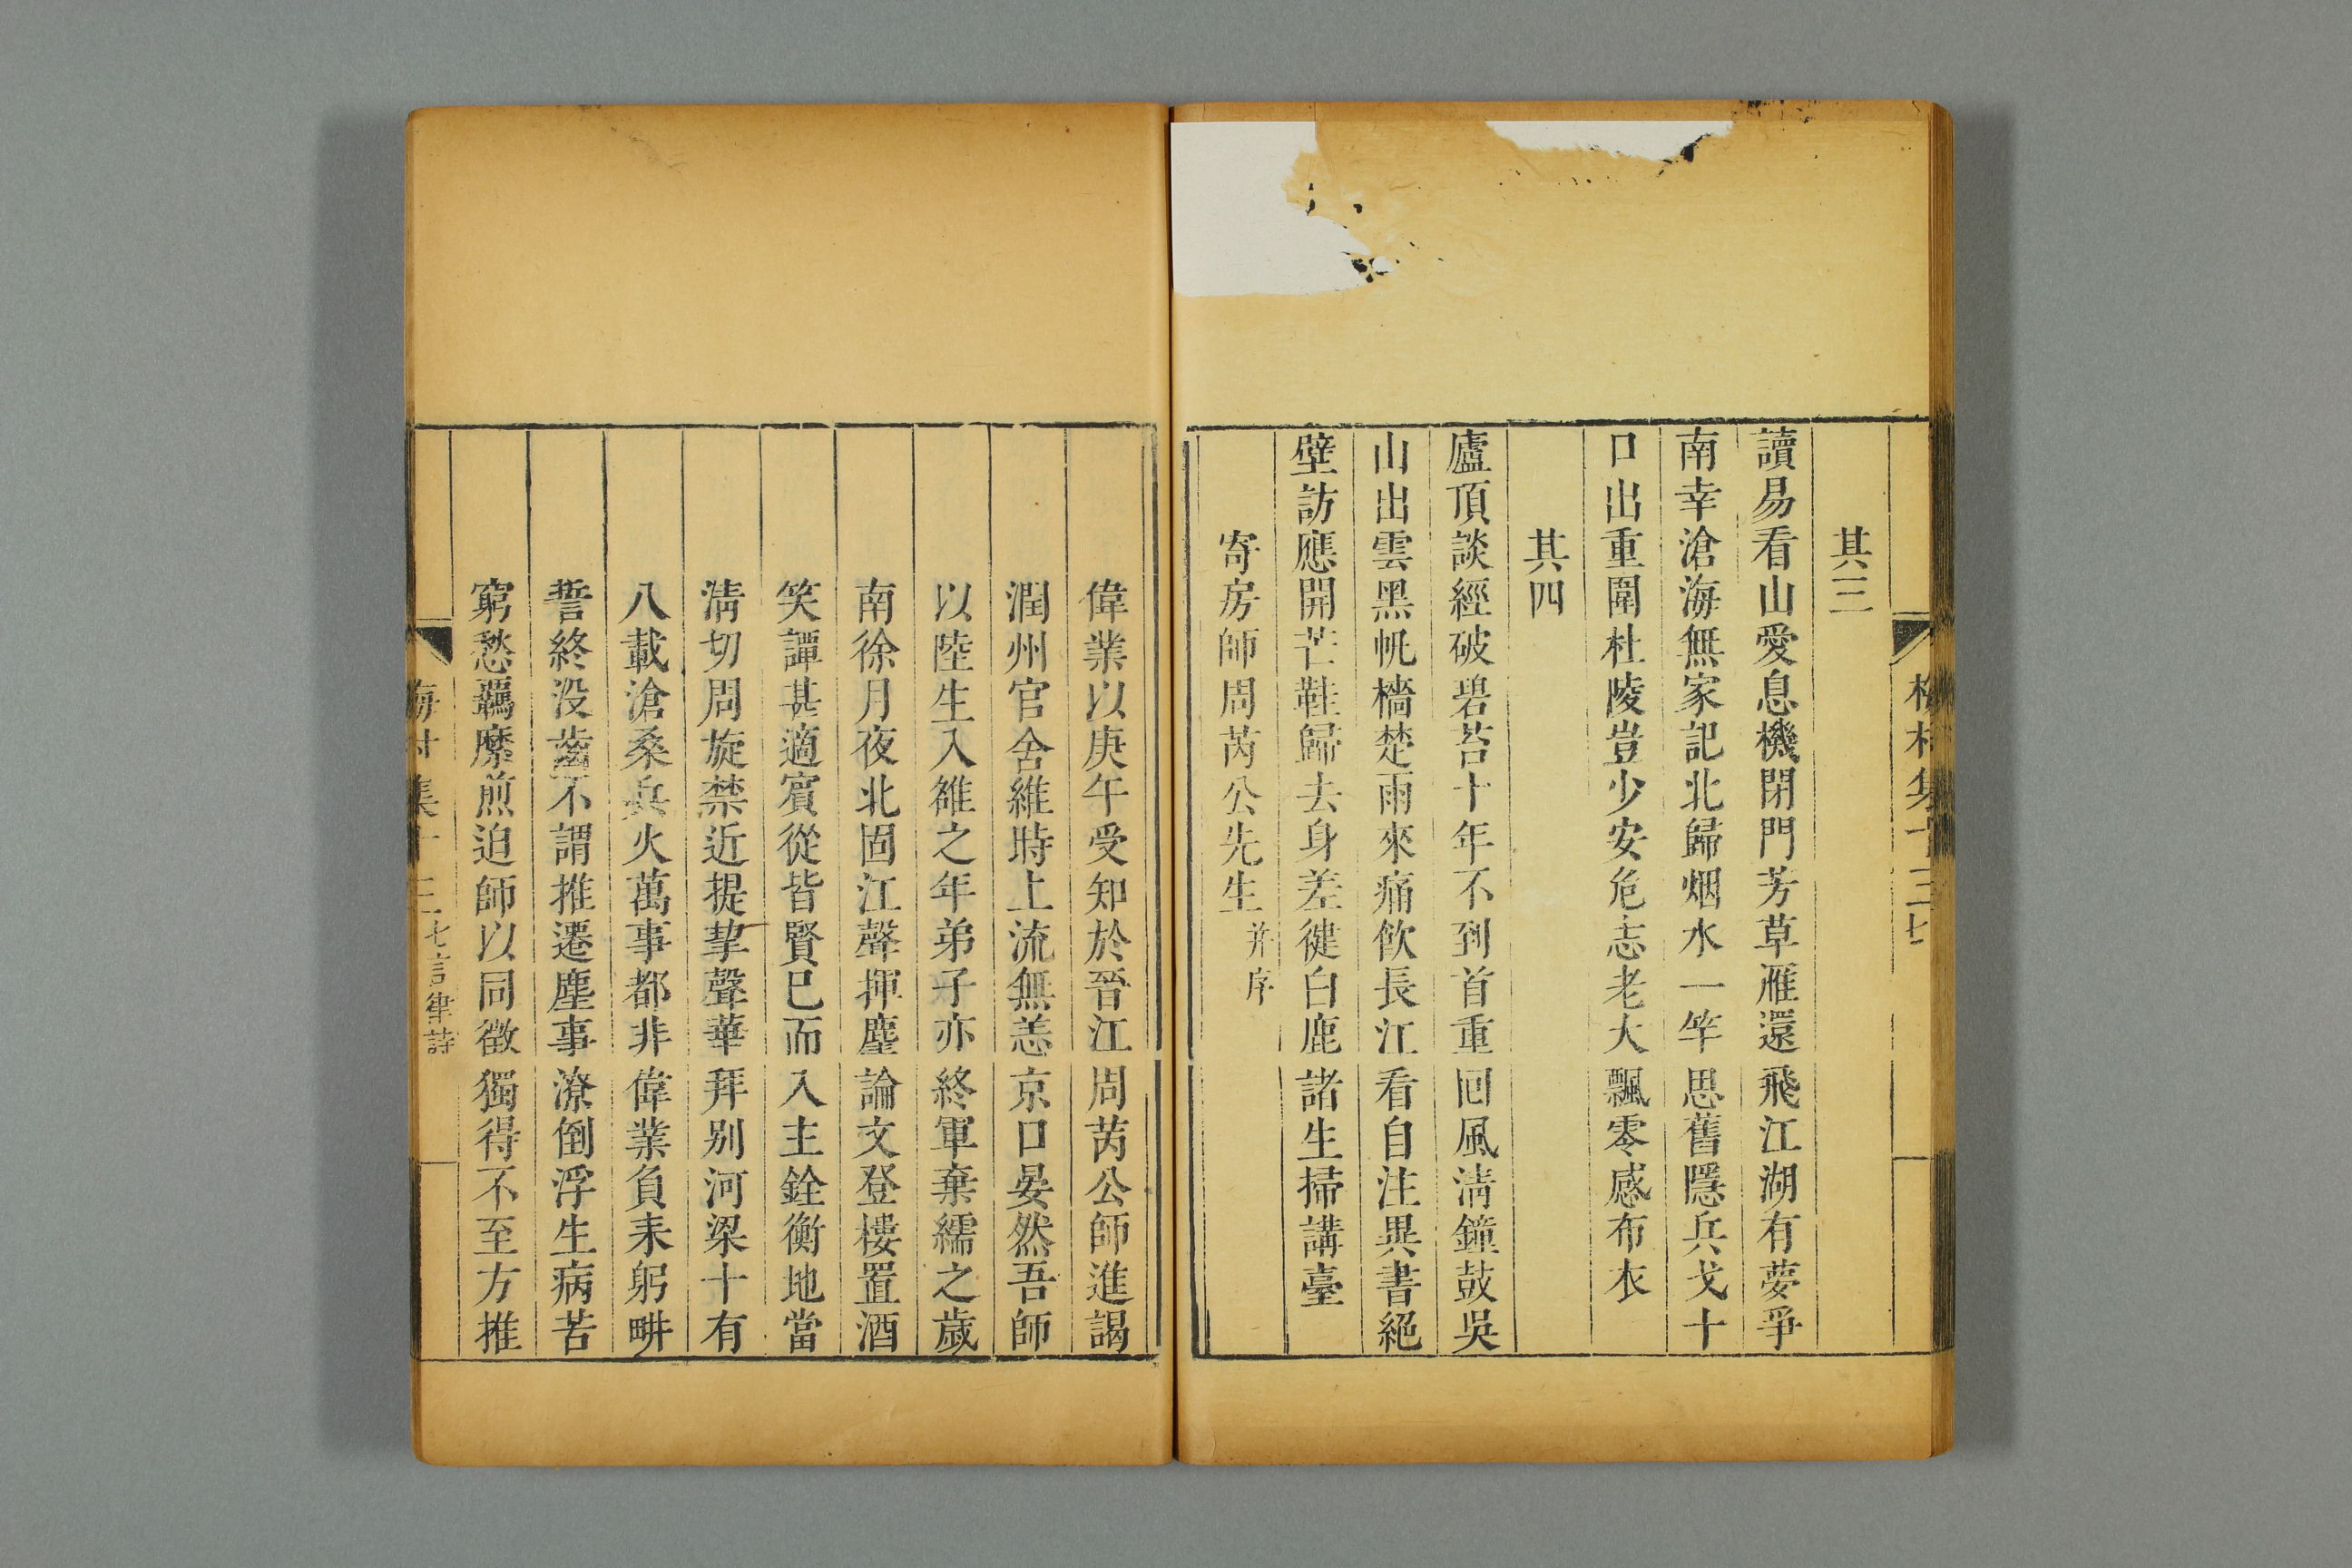 其三
讀易看山愛息機閉門芳草雁還飛江湖有夢爭
南幸滄海無家記北歸烟水一竿思舊隱兵戈十
口出重圍杜陵豈少安危志老大飄零感布衣
其四
廬頂談經破碧苔十年不到首重回風清鐘鼓吳
山出雲黑帆檣楚雨來痛飲長江看自注異書絕
壁訪應開芒鞋歸去身差健白鹿諸生掃講臺
寄房師周芮公先生并序
偉業以庚午受知於晉江周芮公師進謁
潤州官舍維時上流無恙京口晏然吾師
以陸生入雒之年弟子亦終軍棄繻之歲
南徐月夜北固江聲揮麈論文登樓置酒
笑譚甚適賓從皆賢巳而入主銓衡地當
清切周旋禁近提挈聲華拜別河梁十有
八載滄桑兵火萬事都非偉業負耒躬畊
誓終没齒不謂推遷塵事潦倒浮生病苦
窮愁羈縻煎迫師以同徵獨得不至方推
集十三七言律詩